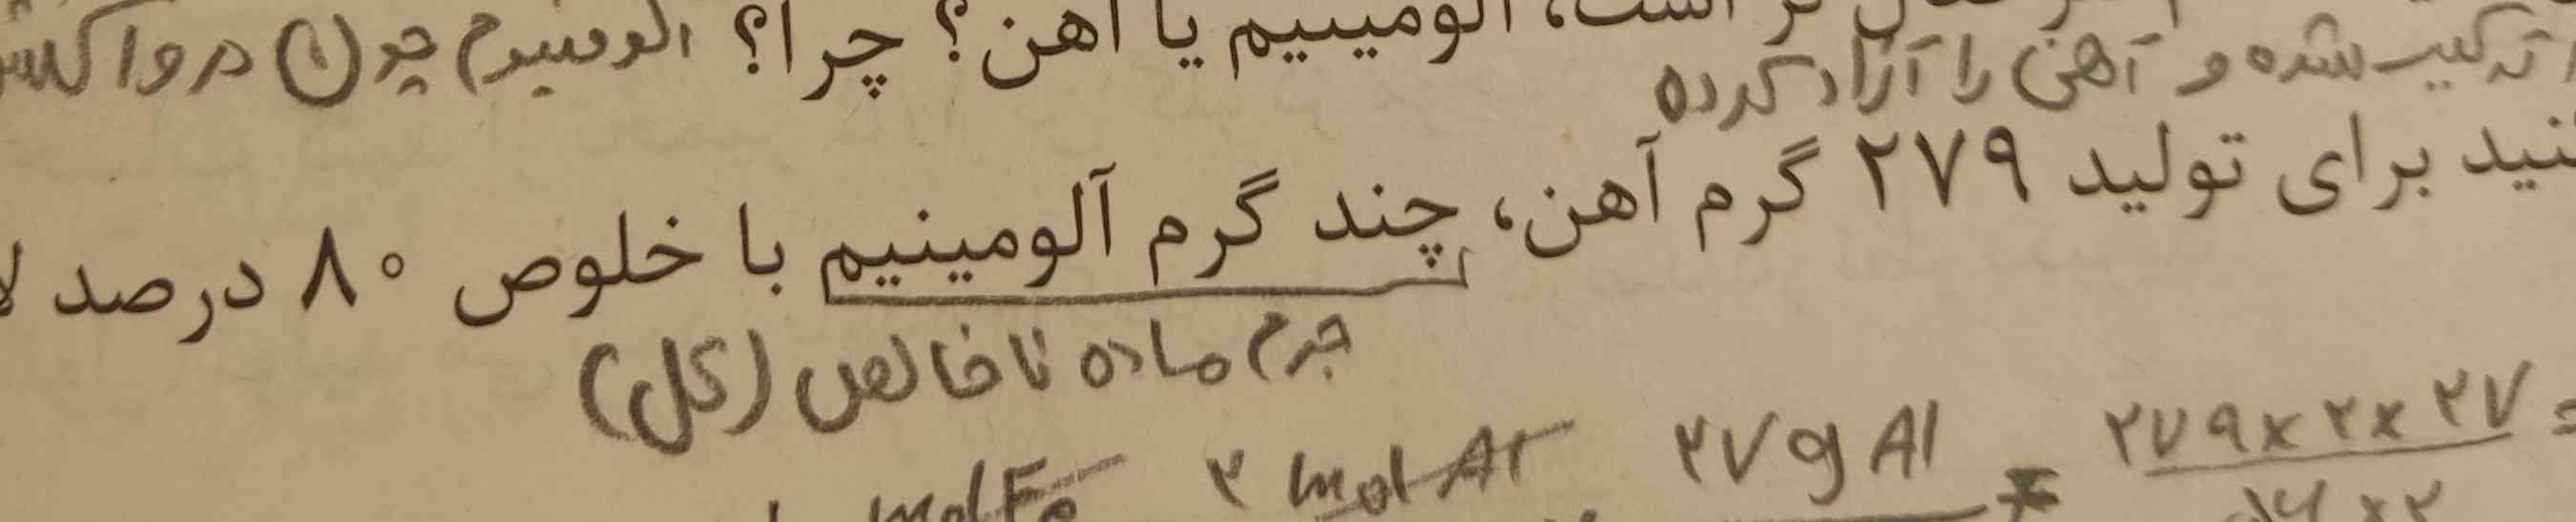 فعال تر است، آلومینیم یا آهن؟ چرا؟ الومینیوم چون در واکنش
ترکیب شده و آهن را آزاد کرده
کنید برای تولید ۲۷۹ گرم آهن، چند گرم آلومینیم با خلوص ۸۰ درصد
جرم ماده ناخالص (کل)
mol Fe ۲ mol Al ۲۷ g Al = ۲۷۹×۲×۲۷ =